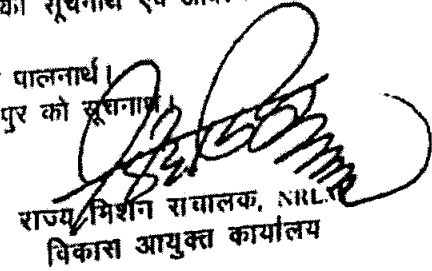 को सूचनार्थ एवं
पालनार्थ।
पुर को सूचनार्थ।
राज्य मिशन संचालक, NRL
विकास आयुक्त कार्यालय